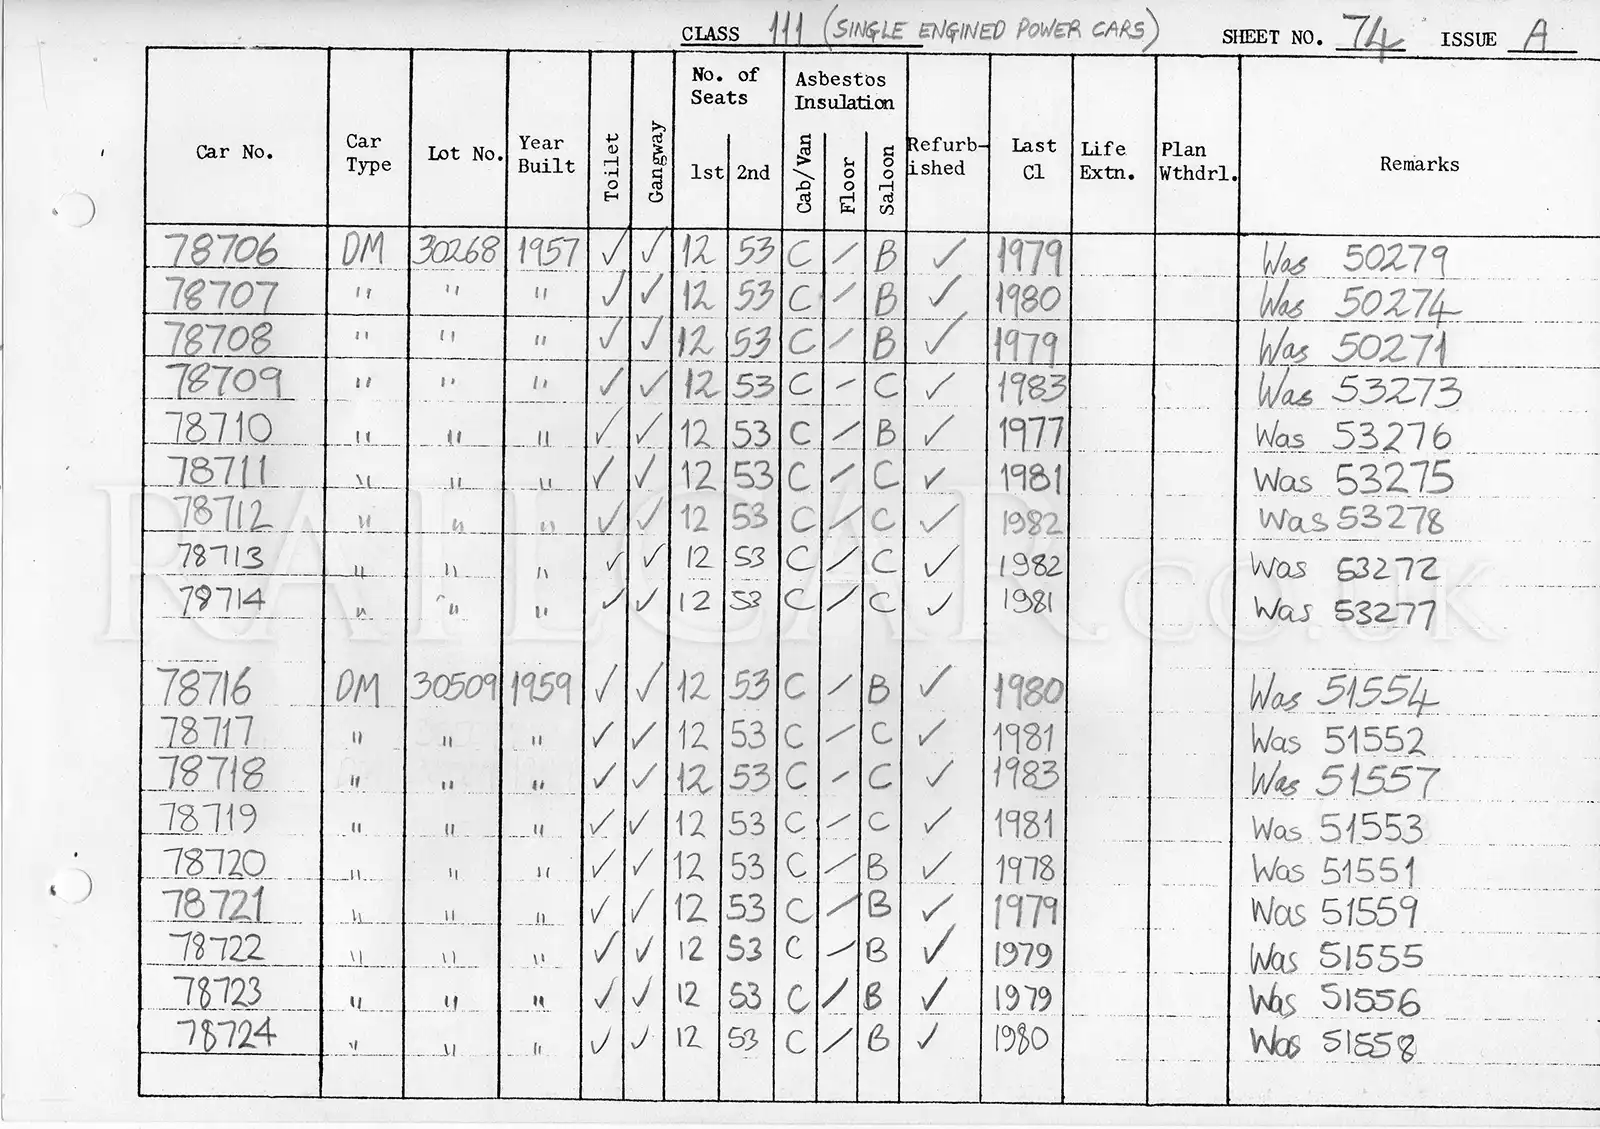 CLASS 111 (SINGLE ENGINED POWER CARS) SHEET NO. 74 ISSUE A
Car No. Car Type Lot No. Year Built Toilet Gangway No. of Seats 1st 2nd Asbestos Insulation Cab/Van Floor Saloon Refurb-ished Last Cl Life Extn. Plan Wthdrl. Remarks
78706 DM 30268 1957 ✓ ✓ 12 53 C / B ✓ 1979 Was 50279
78707 " " " ✓ ✓ 12 53 C / B ✓ 1980 Was 50274
78708 " " " ✓ ✓ 12 53 C / B ✓ 1979 Was 50271
78709 " " " ✓ ✓ 12 53 C / C ✓ 1983 Was 53273
78710 " " " ✓ ✓ 12 53 C / B ✓ 1977 Was 53276
78711 " " " ✓ ✓ 12 53 C / C ✓ 1981 Was 53275
78712 " " " ✓ ✓ 12 53 C / C ✓ 1982 Was 53278
78713 " " " ✓ ✓ 12 53 C / C ✓ 1982 Was 53272
78714 " " " ✓ ✓ 12 53 C / C ✓ 1981 Was 53277
RAILCAR.CO.UK
78716 DM 30509 1959 ✓ ✓ 12 53 C / B ✓ 1980 Was 51554
78717 " " " ✓ ✓ 12 53 C / C ✓ 1981 Was 51552
78718 " " " ✓ ✓ 12 53 C / C ✓ 1983 Was 51557
78719 " " " ✓ ✓ 12 53 C / C ✓ 1981 Was 51553
78720 " " " ✓ ✓ 12 53 C / B ✓ 1978 Was 51551
78721 " " " ✓ ✓ 12 53 C / B ✓ 1979 Was 51559
78722 " " " ✓ ✓ 12 53 C / B ✓ 1979 Was 51555
78723 " " " ✓ ✓ 12 53 C / B ✓ 1979 Was 51556
78724 " " " ✓ ✓ 12 53 C / B ✓ 1980 Was 51558